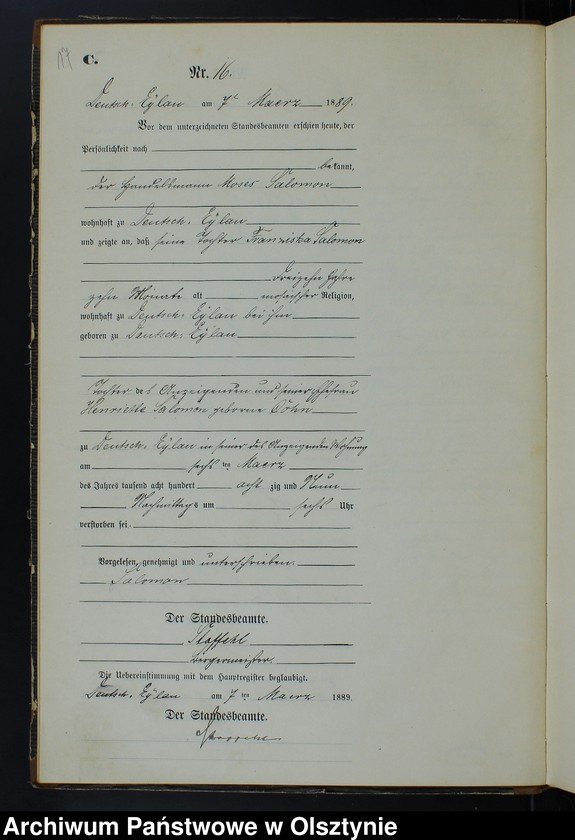 C.
Nr. 16.
Deutsch. Eylau am 7ten Maerz 1889.
Vor dem unterzeichneten Standesbeamten erschien heute, der
Persönlichkeit nach
bekannt,
der Handelsmann Moses Salomon
wohnhaft zu Deutsch. Eylau
und zeigte an, daß seine Tochter Franziska Salomon
dreizehn Jahre
zehn Monate alt mosaischer Religion,
wohnhaft zu Deutsch. Eylau bei ihm
geboren zu Deutsch. Eylau
Tochter des Anzeigenden und seiner Ehefrau
Henriette Salomon geborene Cohn
zu Deutsch. Eylau in seiner des Anzeigenden Wohnung
am sechs ten Maerz
des Jahres tausend acht hundert acht zig und Neun
Nachmittags um sechs Uhr
verstorben sei.
Vorgelesen, genehmigt und unterschrieben.
Salomon
Der Standesbeamte.
Staffehl
Bürgermeister.
Die Uebereinstimmung mit dem Hauptregister beglaubigt.
Deutsch. Eylau am 7 ten Maerz 1889.
Der Standesbeamte.
Archiwum Państwowe w Olsztynie